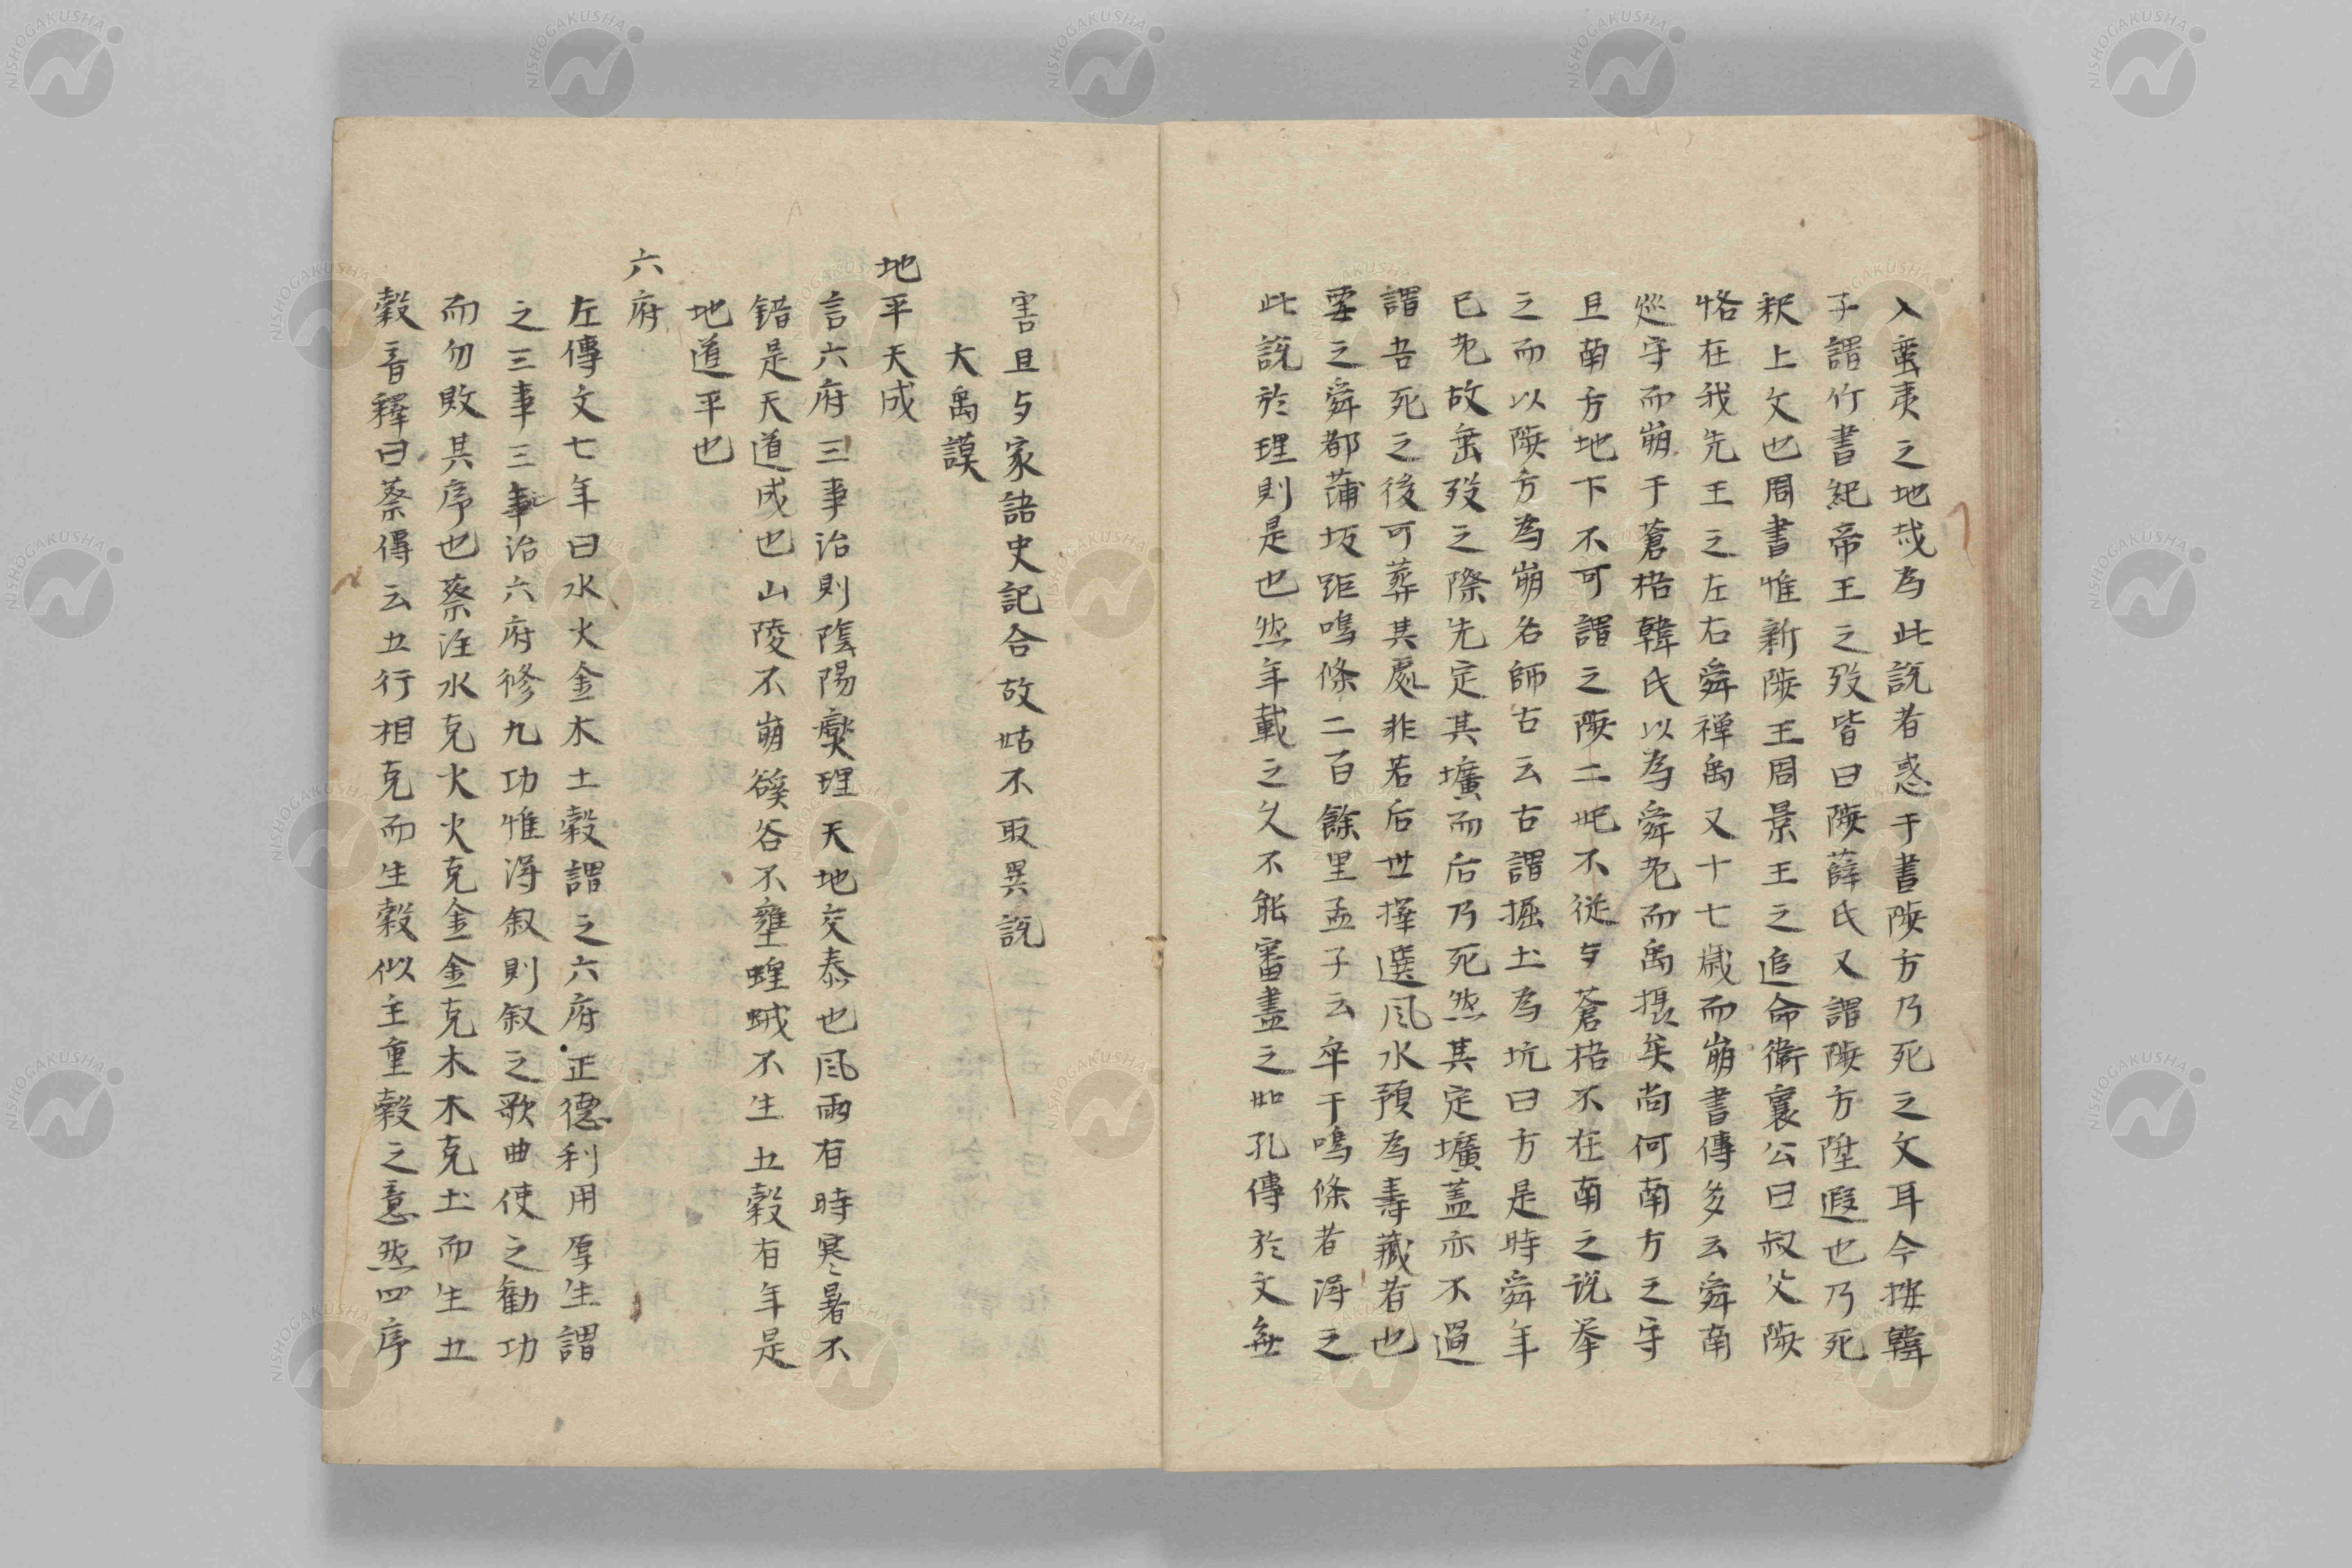 入蛮夷之地哉為此説者惑于書陟方乃死之文耳今按韓
子謂竹書紀帝王之歿皆曰陟薛氏又謂陟方陞遐也乃死
釈上文也周書惟新陟王周景王之追命衛襄公曰叔父陟
恪在我先王之左右舜禅禹又十七歳而崩書傳多云舜南
巡守而崩于蒼梧韓氏以為舜老而禹摂矣尚何南方之守
且南方地下不可謂之陟二妃不従与蒼梧不在南之説挙
之而以陟方為崩名師古云古謂掘土為坑曰方是時舜年
已老故垂歿之際先定其壙而后乃死然其定壙蓋亦不過
謂吾死之後可葬其處非若后世擇選風水預為壽藏者也
要之舜都蒲坂距鳴條二百餘里孟子云卒于鳴條者得之
此説於理則是也然年載之久不能審盡之如孔傳於文無
害且与家語史記合故姑不取異説
大禹謨
地平天成
言六府三事治則陰陽燮理天地交泰也風雨有時寒暑不
錯是天道成也山陵不崩磎谷不壅蝗蜮不生五穀有年是
地道平也
六府
左傳文七年曰水火金木土穀謂之六府正德利用厚生謂
之三事三事治六府修九功惟得叙則叙之歌曲使之勧功
而勿敗其序也蔡注水克火火克金金克木木克土而生五
穀音釋曰蔡傳云五行相克而生穀似主重穀之意然四序
NISHOGAKUSHA